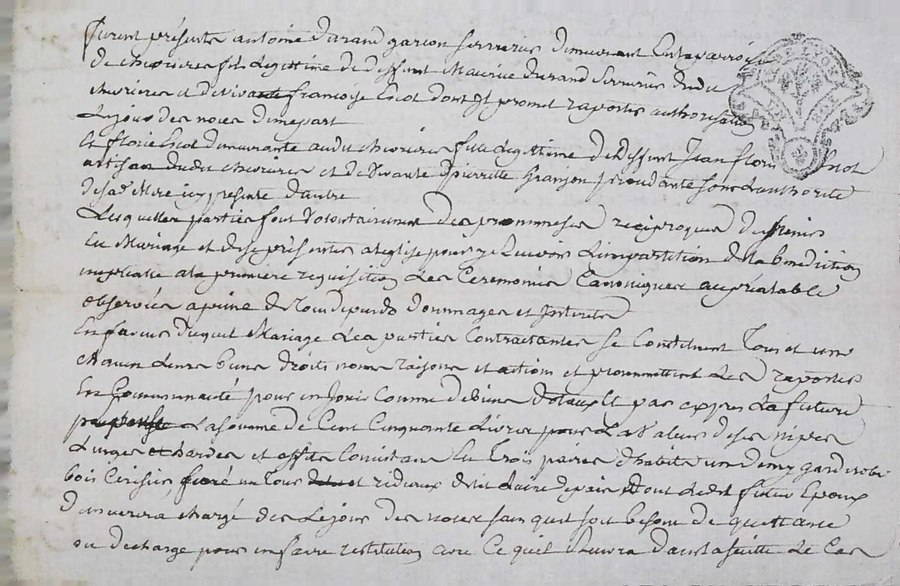 furent présents antoine durand garcon serrurier demeurant en la parroisse
de chevrieres fils legittime de deffunt Maurice durand serrurier dudt
chevrieres et de vivante francoise escot dont Il promet raporter authorisation
Le jour des noces dune part
et florie escot demeurante audt chevrieres fille legittime de deffunt Jean flory escot
artisan dudt chevrieres et de vivante pierrette granjon procedante sous Lauthorité
de sade Mere icy presente dautre
Lesquelles parties font volontairement des prommesses reciproques de sunir
En Mariage et de se presenter a leglise pour y recevoir Limpartition de la benediction
nuptialle a la premiere requisition Les Ceremonies Canoniques au préalable
observées a peine de tous depends dommages et Interets
En faveur duquel Mariage Les parties Contractantes se Constituent Tous et un
chacun Leurs biens droits noms raisons et actions et promettent Les raporter
En Communauté pour en Jouir Comme de biens dotaux Et par exprès La future
La somme de Cent Cinquante Livres pour La Valeur de ses nipes
Linges hardes et effets Consistant En Trois paires dhabits un demy garderobe
bois Cerisier, ferré un tour et rideaux de lit Laire de païs dont Ledt futur Epoux
demeurera chargé des Le jour des noces sans quil soit besoin de quittance
ou decharge pour en faire restitution avec Ce quil recevra dans la suitte Le Cas